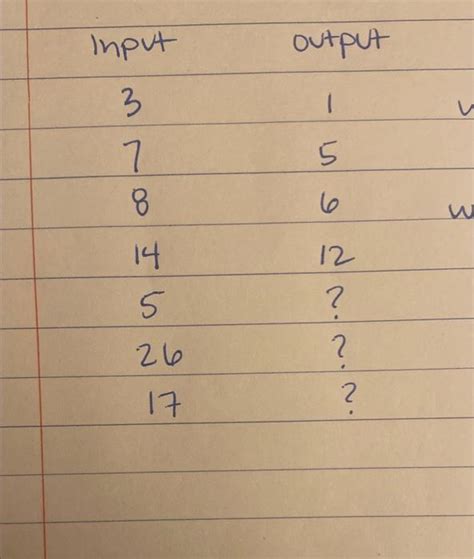 Input output
3 1
7 5
8 6 w
14 12
5 ?
26 ?
17 ?